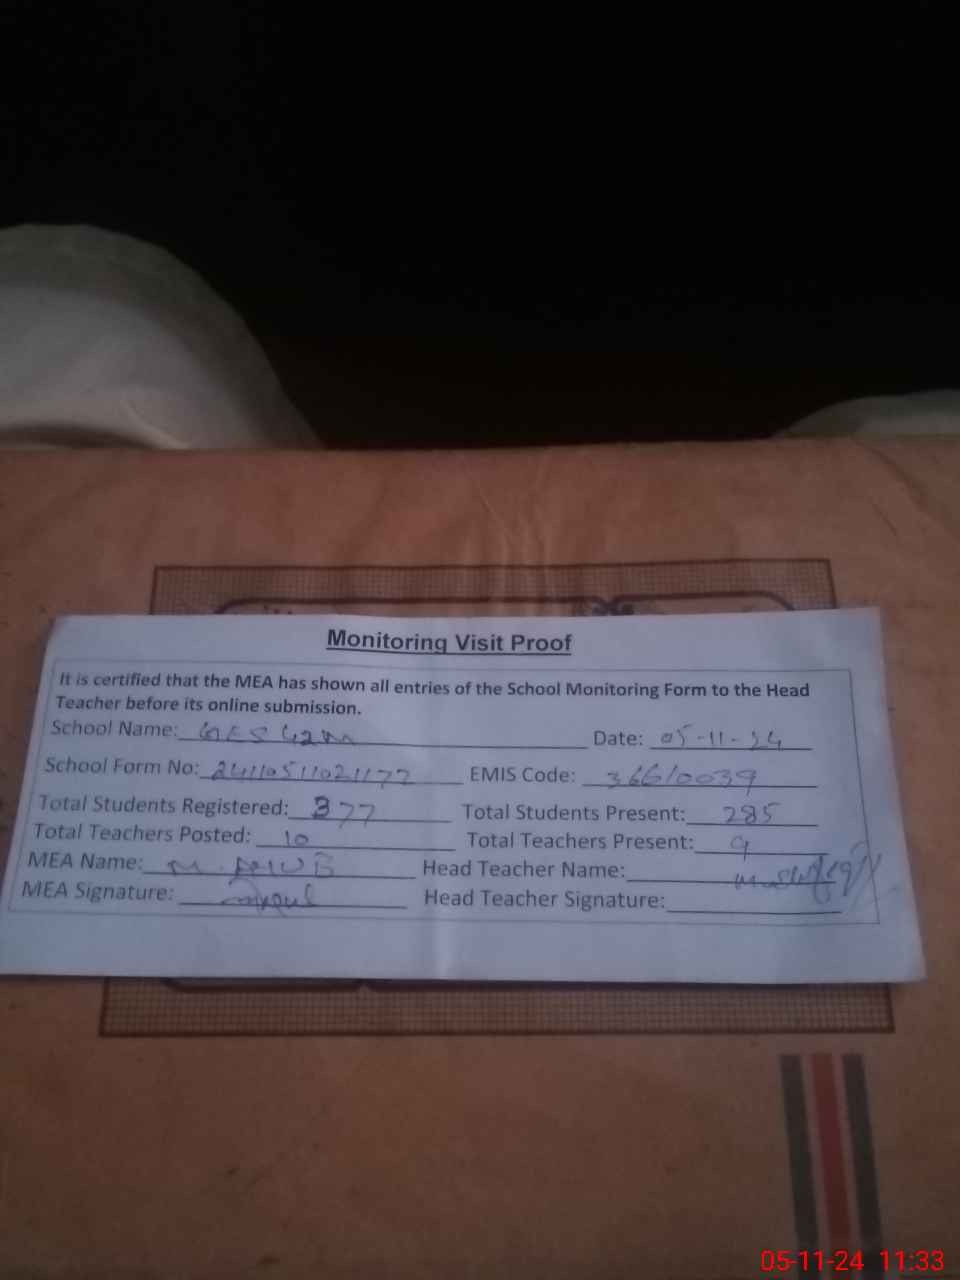 Monitoring Visit Proof
It is certified that the MEA has shown all entries of the School Monitoring Form to the Head
Teacher before its online submission.
School Name: GES Date: 05-11-24
School Form No: 24110511021177 EMIS Code: 36610039
Total Students Registered: 377 Total Students Present: 285
Total Teachers Posted: 10 Total Teachers Present: 9
MEA Name: M. Head Teacher Name:
MEA Signature: Head Teacher Signature:
05-11-24 11:33